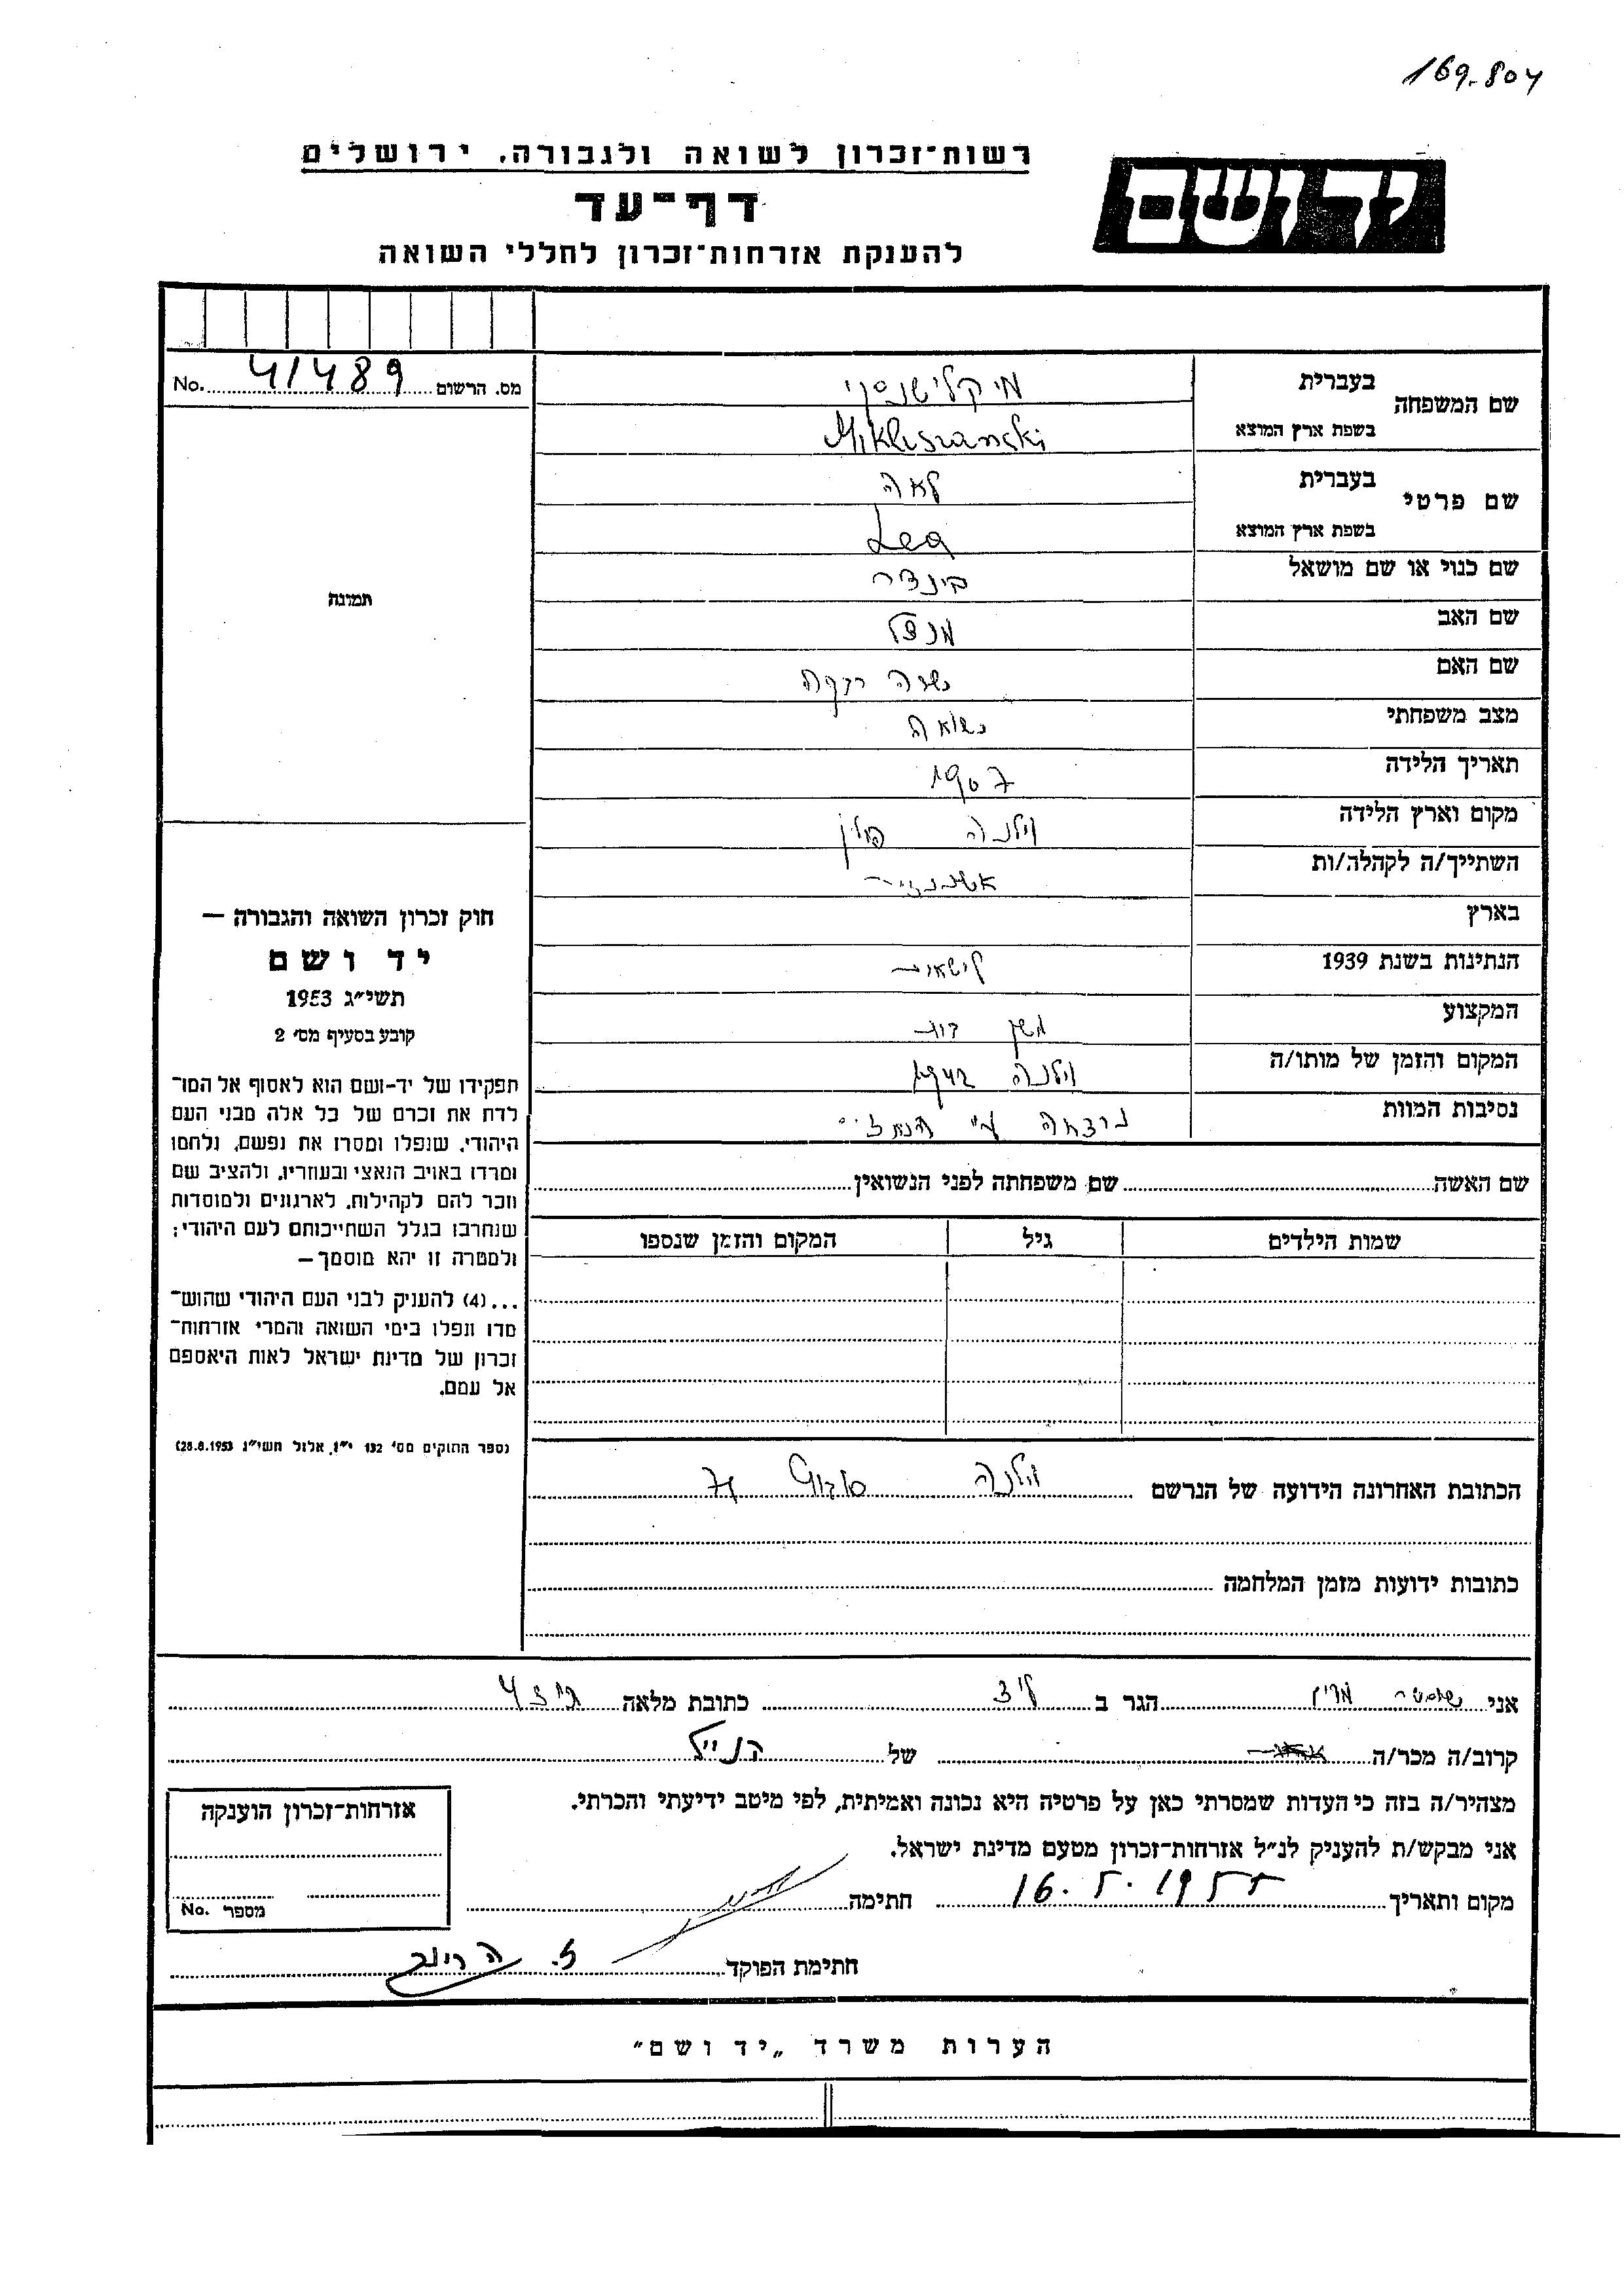 169.804
רשות־זכרון לשואה ולגבורה, ירושלים
יד ושם
דף־עד
להענקת אזרחות־זכרון לחללי השואה
מס. הרשום 41489 No.
שם המשפחה
בעברית מיקלישנסקי
בשפת ארץ המוצא Mikliszanski
שם פרטי
בעברית לאה
בשפת ארץ המוצא Lea
שם כנוי או שם מושאל בינדר
שם האב מנדל
שם האם שרה רבקה
מצב משפחתי נשואה
תאריך הלידה 1907
מקום וארץ הלידה וילנה פולין
השתייך/ה לקהלה/ות
בארץ
הנתינות בשנת 1939
המקצוע משק בית
המקום והזמן של מותו/ה וילנה 1942
נסיבות המוות נרצחה ע"י הנאצים
תמונה
חוק זכרון השואה והגבורה —
יד ושם
תשי״ג 1953
קובע בסעיף מס׳ 2
תפקידו של יד-ושם הוא לאסוף אל המו־
לדת את זכרם של כל אלה מבני העם
היהודי, שנפלו ומסרו את נפשם, נלחמו
ומרדו באויב הנאצי ובעוזריו, ולהציב שם
וזכר להם לקהילות, לארגונים ולמוסדות
שנחרבו בגלל השתייכותם לעם היהודי;
ולמטרה זו יהא מוסמך—
...(4) להעניק לבני העם היהודי שהוש־
מדו ונפלו בימי השואה והמרי אזרחות־
זכרון של מדינת ישראל לאות היאספם
אל עמם.
(ספר החוקים מס׳ 132 י״ז, אלול תשי״ג 28.8.1953)
שם האשה שם משפחתה לפני הנשואין
שמות הילדים גיל המקום והזמן שנספו
הכתובת האחרונה הידועה של הנרשם וילנה
כתובות ידועות מזמן המלחמה
אני הגר ב כתובת מלאה
קרוב/ה מכר/ה של הנ״ל
מצהיר/ה בזה כי העדות שמסרתי כאן על פרטיה היא נכונה ואמיתית, לפי מיטב ידיעתי והכרתי.
אני מבקש/ת להעניק לנ״ל אזרחות־זכרון מטעם מדינת ישראל.
מקום ותאריך 16.5.1955 חתימה
חתימת הפוקד
אזרחות־זכרון הוענקה
מספר No.
הערות משרד „יד ושם״